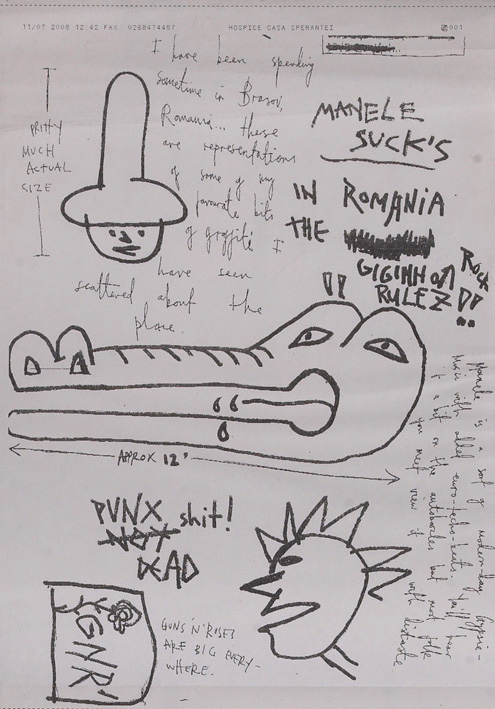 11/07 2006 12:42 FAX 0268474467 HOSPICE CASA SPERANTEI 001
I have been spending
sometime in Brasov,
Romania... these
are representations
of some of my
favourite bits
of graffiti I
have seen
scattered about the
place.
PRITTY
MUCH
ACTUAL
SIZE
MANELE
SUCK'S
IN ROMANIA
THE
ROCK
RULEZ !!
APPROX 12"
Manele is a sort of modern-day
music with added euro-techno-beats. You'll hear
it a bit on the but most folk
you meet view it with distaste
PUNX shit!
NOT
DEAD
GNR'
GUNS 'N' ROSES
ARE BIG EVERY-
WHERE.